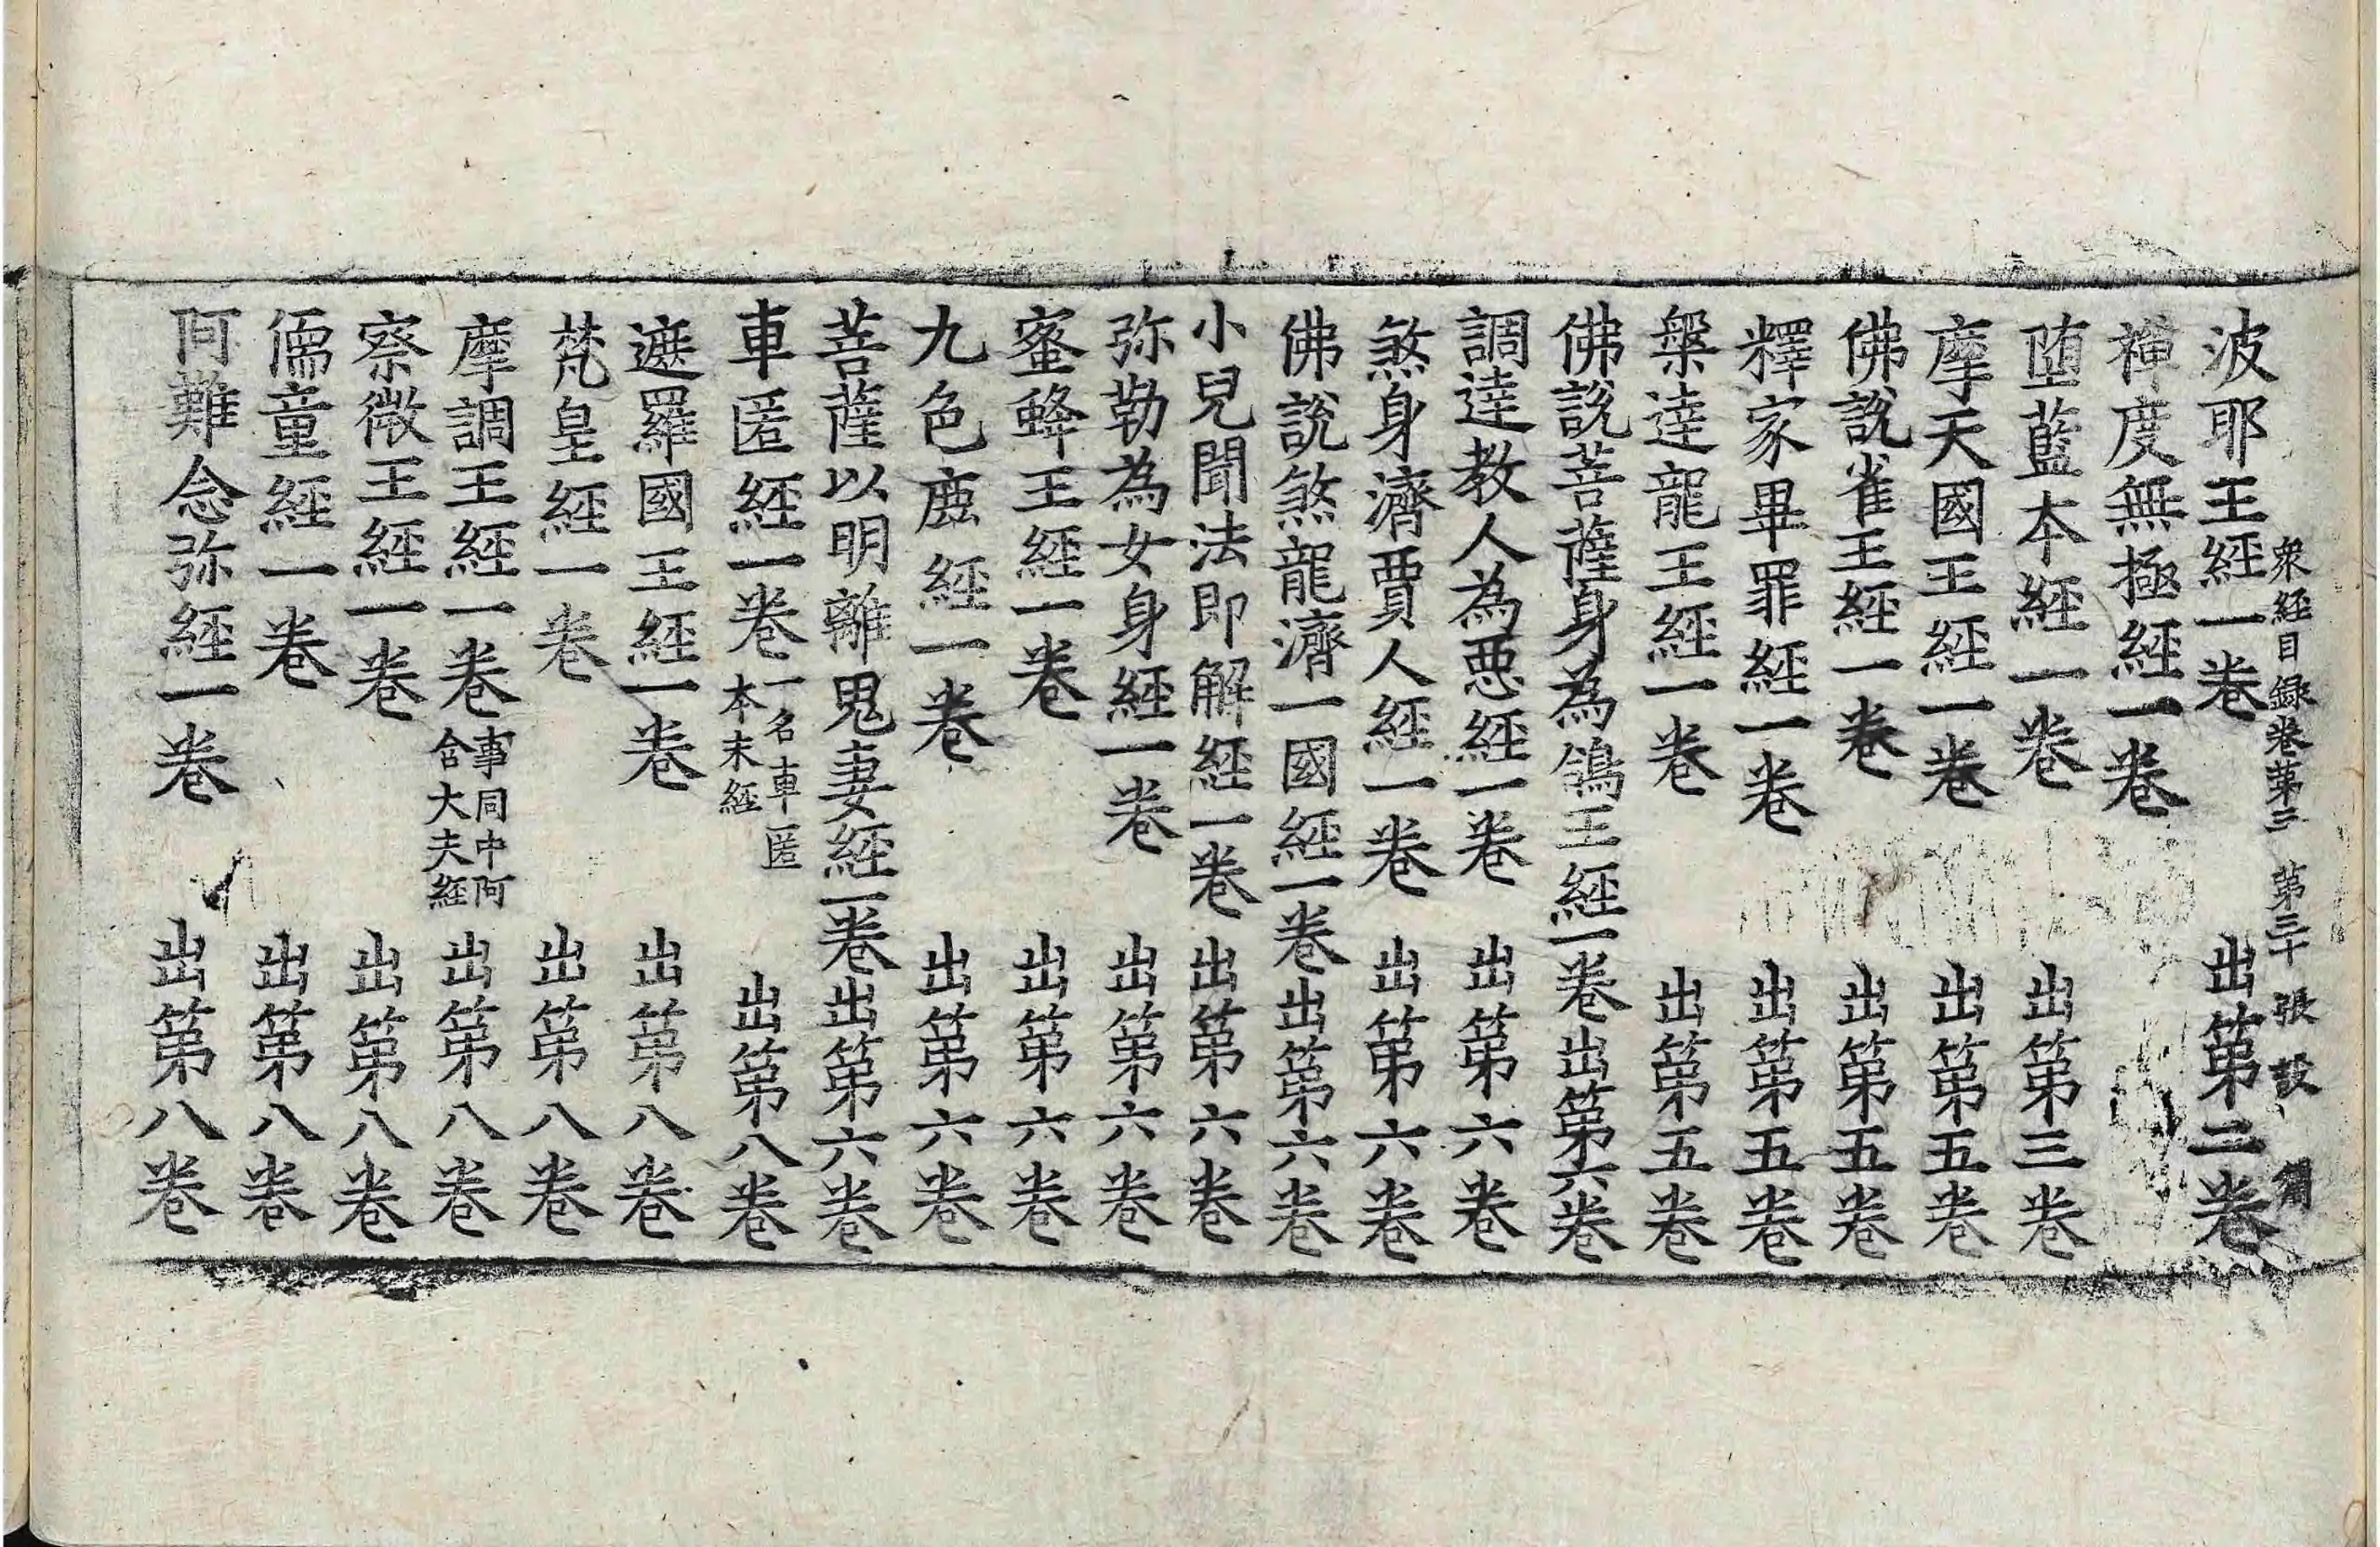 衆經目録卷第三 第三十張 設
波耶王經一卷 出第二卷
禪度無極經一卷
堕藍本經一卷 出第三卷
摩天國王經一卷 出第五卷
佛說雀王經一卷 出第五卷
釋家畢罪經一卷 出第五卷
槃達龍王經一卷 出第五卷
佛說菩薩身為鴿王經一卷出第六卷
調達教人為惡經一卷 出第六卷
煞身濟賈人經一卷 出第六卷
佛說煞龍濟一國經一卷出第六卷
小兒聞法即解經一卷 出第六卷
弥勒為女身經一卷 出第六卷
蜜蜂王經一卷 出第六卷
九色鹿經一卷 出第六卷
菩薩以明離鬼妻經一卷出第六卷
車匿經一卷 一名車匿本末經 出第八卷
遮羅國王經一卷 出第八卷
梵皇經一卷 出第八卷
摩調王經一卷 事同中阿含大夫經 出第八卷
察微王經一卷 出第八卷
儒童經一卷 出第八卷
阿難念弥經一卷 出第八卷